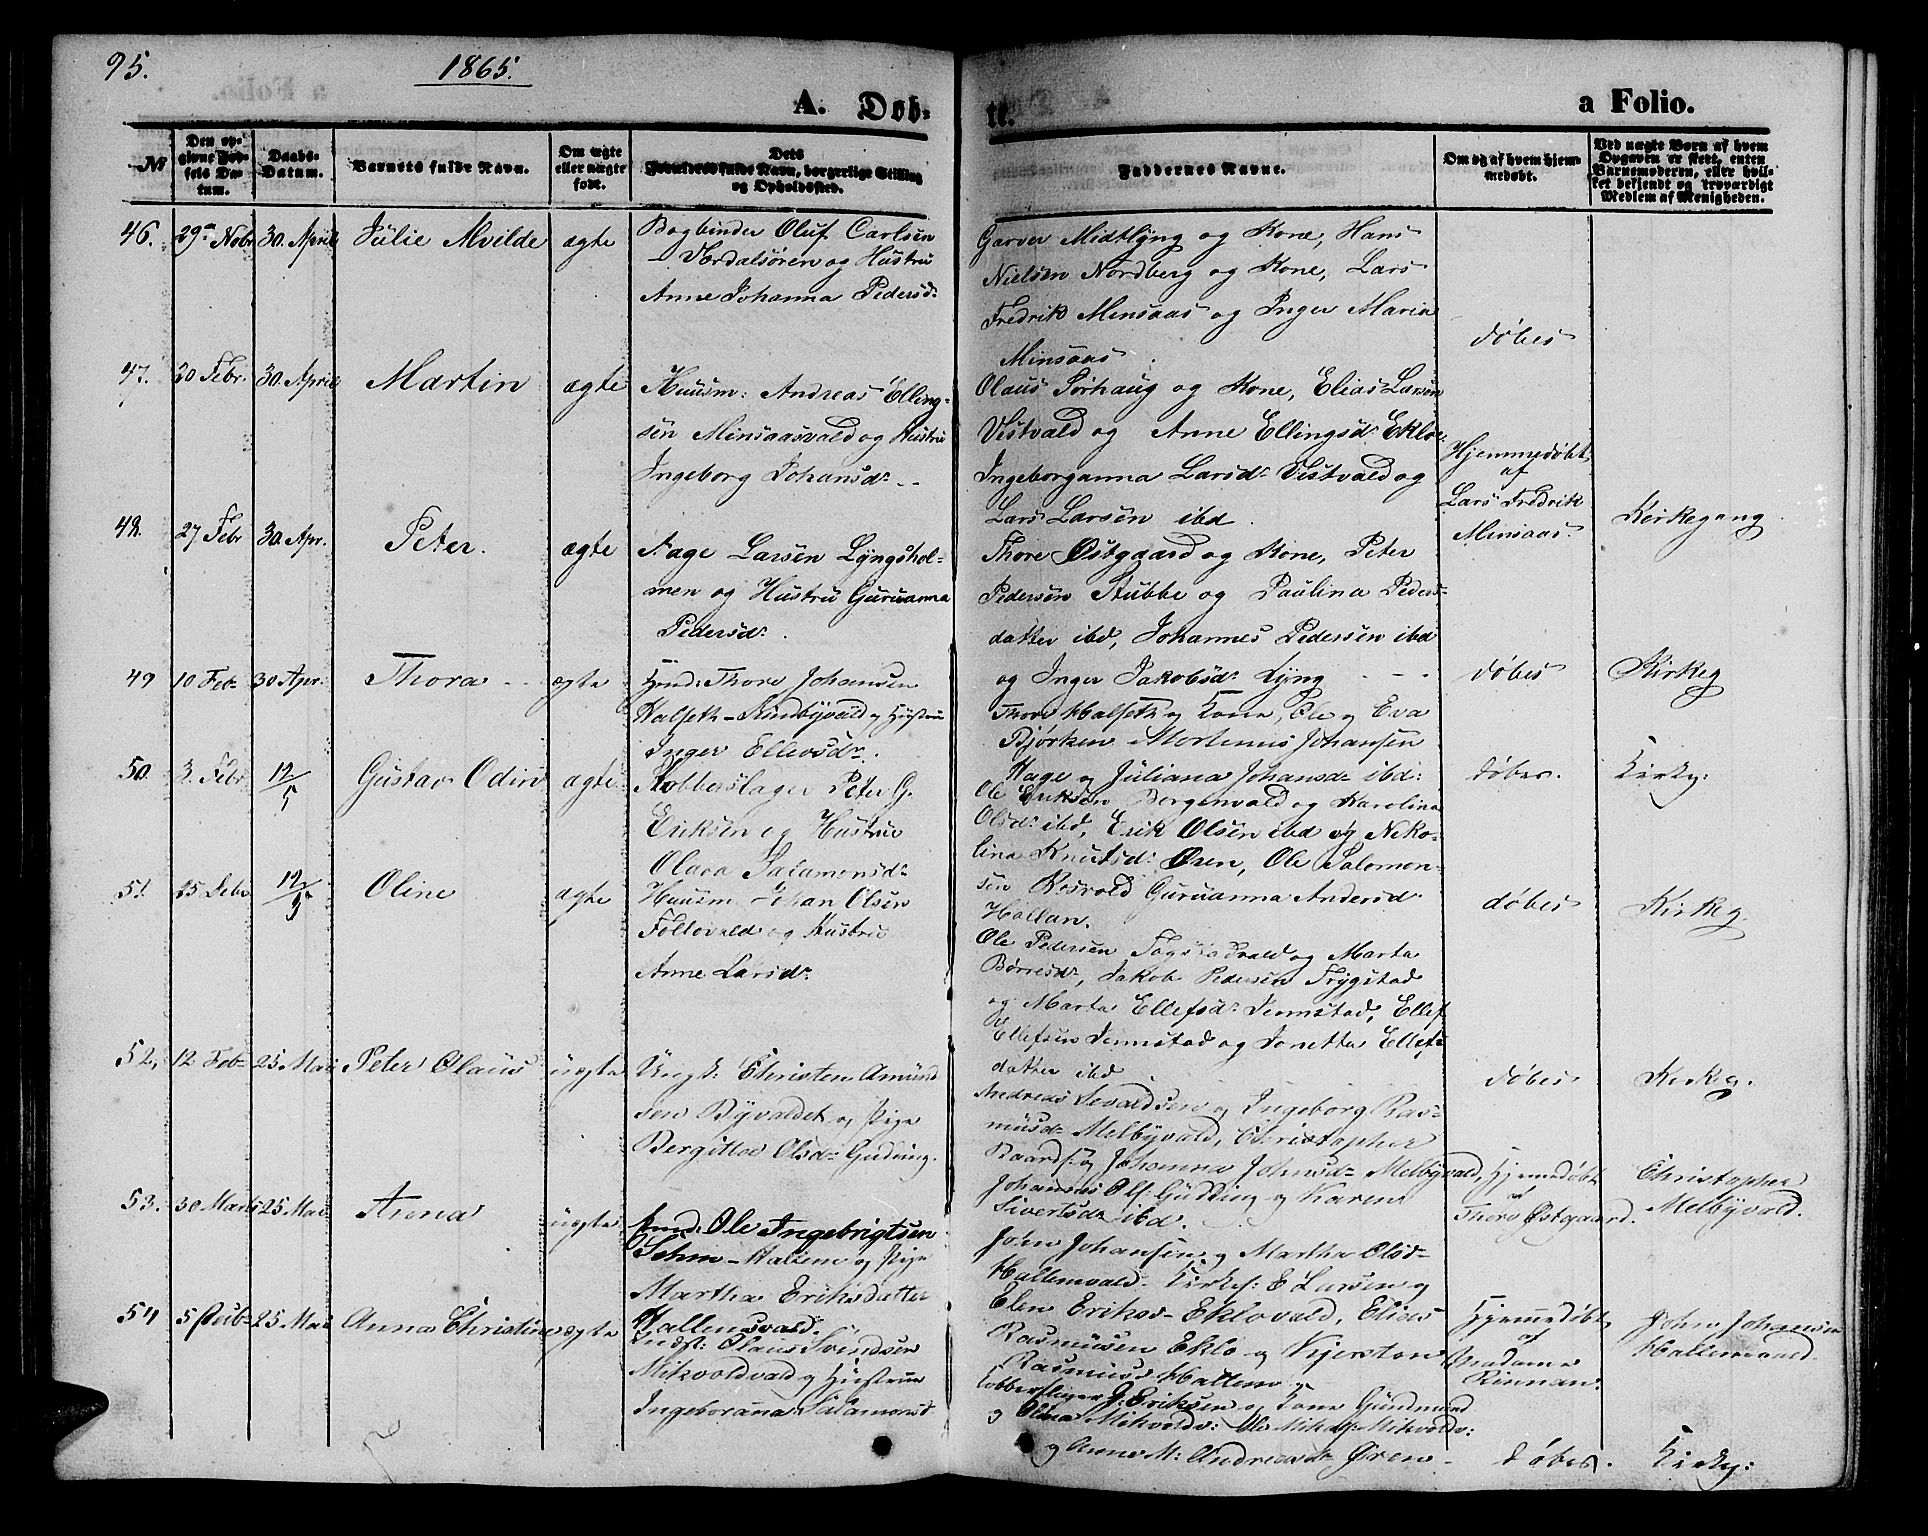 95.
1865.
A. Døb-
te.
a Folio.
No
Den op-
givne Fød-
sels Da-
tum.
Daabs-
Datum.
Barnets fulde Navn.
Om ægte
eller uægte
født.
Dets
Forældres fulde Navn, borgerlige Stilling
og Opholdssted.
Faddernes Navne.
Om og af hvem hjem-
medøbt.
Ved uægte Børn af hvem
Opgaven er skeet, enten
Barnemoderen, eller hvil-
ket bekjendt og troværdigt
Medlem af Menigheden.
46. 29de Nobr 30. April Julie Alvilde ægte
Bogbinder Oluf Carlsen
Værdalsøren og Hustru
Anne Johanna Pedersdr
Garver Midtlyng og Kone, Hans
Nielsen Nordberg og Kone, Lars
Fredrik Minsaas og Inger Maria
Minsaas.
døbes
47. 20 Febr. 30. April Martin ægte
Huusm: Andreas Elling-
sen Minsaasvald og Hustru
Ingeborg Johansdr
Olaus Sørhaug og Kone, Elias Larsen
Vestvald og Anne Ellingsdr Eklo
Ingeborganna Larsdr Vestvald og
Lars Larsen ibd.
Hjemmedøbt
af
Lars Fredrik
Minsaas.
Kirkegang.
48. 27 Febr 30. Apr. Peter. ægte
Aage Larsen Lyngshol-
men og Hustru Guruanna
Pedersdr.
Thore Østgaard og Kone, Peter
Pedersen Stubbe og Paulina Peders-
datter ibd, Johannes Pedersen ibd
og Inger Jakobsdr Lyng
døbes
Kirkeg
49 10 Feb 30 Apr. Thora ægte
Thore Johansen
Halseth-Lundbyvald og Hustru
Inger Ellevsdr.
Thore Halseth og Kone, Ole og Eva
Bjørken Mortenus Johansen
Hage og Juliana Johansdr ibd:
døbes.
Kirkg:
50. 3. Febr 12/5 Gustav Odin ægte
Kobberslager Peter G.
Eriksen og Hustru
Olava Salamonsdr
Ole Eriksen Borgenvald og Karolina
Olsdr ibd, Erik Olsen ibd og Niko-
lina Knutsdr Øren, Ole Salomon-
sen Rosvold Guruanna Andersd
Hallan.
døbes
Kirkeg.
51. 25 Febr 12/5 Oline ægte
Huusm Johan Olsen
Follovald og Hustru
Anne Larsdr
Ole Pedersen Fagstadvald og Marta
Børresdr, Jakob Pedersen Trygstad
og Marta Ellefsdr Jermstad, Ellef
Ellefsen Jermstad og Jonetta Ellefs-
datter ibd
døbes
Kirkeg.
52, 12 Feb 25 Mai Peter Olaus uægte
Ungk: Christen Amund
sen Byvaldet og Pige
Bergitte Olsdr Gudding.
Andreas Sevaldsen og Ingeborg Ras-
musdr Melbyvald, Christopher
Baards: og Johanna Johnsdr Melbyvald,
Johannes Ols: Gudding og Karen
Sivertsdr ibd.
Hjemmedøbt
af
Thore Østgaard.
Christopher
Melbyvald.
53. 30 Marts 25 Mai Anna uægte
Ole Ingebrigtsen
Sehm-Halsen og Pige
Martha Eriksdatter
Hallemsvald.
John Johansen og Martha Olsdr
Hallemvald. Kirkes: E Larsen og
Elen Eriksd Eklovald, Elias
Rasmusen Eklo og Kjersten
Rasmusd Hallem
Hjemmedøbt
af
Madame
Rinnan.
John Johansen
Hallemvald.
54 25 Mai Anna Christine ægte
Indst: Olaus Svendsen
Mikvoldvald og Hustrue
Ingeborana Salamonsd
Kobberslager J. Eriksen og Kone Gundmund
og Olina Mikvoldv: Ole Mikals: Mikvoldv:
og Anne M: Andreasdr Øren
døbes.
Kirkg: